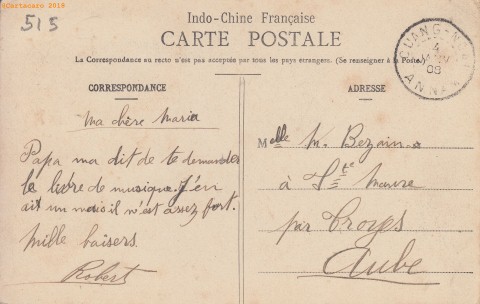 ©Cartacaro 2019
515
Indo-Chine Française
CARTE POSTALE
La Correspondance au recto n'est pas acceptée par tous les pays étrangers. (Se renseigner à la Poste)
CORRESPONDANCE
ADRESSE
QUANG-
4
08
ANNAM
Ma chère Maria
Papa ma dit de te demander
le livre de musique. J'en
ait un mais il n'est assez fort.
Mille baisers.
Robert
Melle M. Bezain
à Ste Maure
par Troyes
Aube